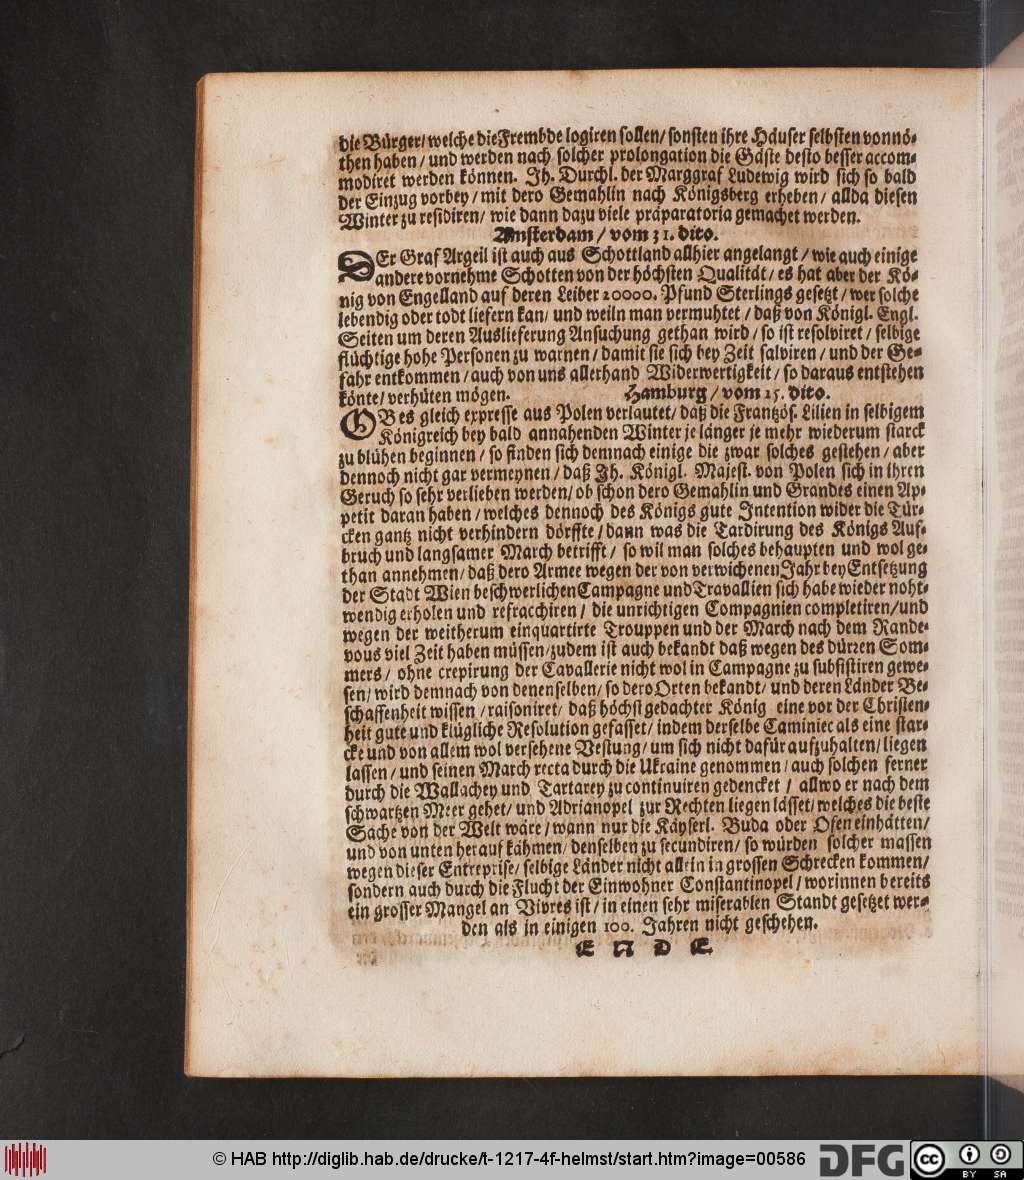 die Bürger/ welche die Frembde logiren sollen/ sonsten ihre Häuser selbsten vonnö-
then haben/ und werden nach solcher prolongation die Gäste desto besser accom-
modiret werden können. Ih. Durchl. der Marggraf Ludewig wird sich so bald
der Einzug vorbey/ mit dero Gemahlin nach Königsberg erheben/ allda diesen
Winter zu residiren/ wie dann dazu viele præparatoria gemachet werden.
Amsterdam/ vom 31. dito.
DEr Graf Argeil ist auch aus Schottland allhier angelangt/ wie auch einige
andere vornehme Schotten von der höchsten Qualität/ es hat aber der Kö-
nig von Engelland auf deren Leiber 10000. Pfund Sterlings gesetzt/ wer solche
lebendig oder todt liefern kan/ und weiln man vermuhtet/ daß von Königl. Engl.
Seiten um deren Auslieferung Ansuchung gethan wird/ so ist resolviret/ selbige
flüchtige hohe Personen zu warnen/ damit sie sich bey Zeit salviren/ und der Ge-
fahr entkommen/ auch von uns allerhand Widerwertigkeit/ so daraus entstehen
könte/ verhüten mögen. Hamburg/ vom 25. dito.
OB es gleich expresse aus Polen verlautet/ daß die Frantzös. Lilien in selbigem
Königreich bey bald annahenden Winter je länger je mehr wiederum starck
zu blühen beginnen/ so finden sich demnach einige die zwar solches gestehen/ aber
dennoch nicht gar vermeynen/ daß Ih. Königl. Majest. von Polen sich in ihren
Geruch so sehr verlieben werden/ ob schon dero Gemahlin und Grandes einen Ap-
petit daran haben/ welches dennoch des Königs gute Intention wider die Tür-
cken gantz nicht verhindern dörffte/ dann was die Tardirung des Königs Auf-
bruch und langsamer March betrifft/ so wil man solches behaupten und wol ge-
than annehmen/ daß dero Armee wegen der von verwichenen Jahr bey Entsetzung
der Stadt Wien beschwerlichen Campagne und Travallien sich habe wieder noht-
wendig erholen und refracchiren/ die unrichtigen Compagnien completiren/ und
wegen der weitherum einquartirte Trouppen und der March nach dem Rande-
vous viel Zeit haben müssen/ zudem ist auch bekandt daß wegen des dürren Som-
mers/ ohne crepirung der Cavallerie nicht wol in Campagne zu subsistiren gewe-
sen/ wird demnach von denenselben/ so dero Orten bekandt/ und deren Länder Be-
schaffenheit wissen/ raisoniret/ daß höchstgedachter König eine vor der Christen-
heit gute und klügliche Resolution gefasset/ indem derselbe Caminiec als eine star-
cke und von allem wol versehene Vestung/ um sich nicht dafür aufzuhalten/ liegen
lassen/ und seinen March recta durch die Ukraine genommen/ auch solchen ferner
durch die Wallachey und Tartarey zu continuiren gedencket/ allwo er nach dem
schwartzen Meer gehet/ und Adrianopel zur Rechten liegen lässet/ welches die beste
Sache von der Welt wäre/ wann nur die Käyserl. Buda oder Ofen einhätten/
und von unten herauf kähmen/ denselben zu secundiren/ so würden solcher massen
wegen dieser Entreprise/ selbige Länder nicht allein in grossen Schrecken kommen/
sondern auch durch die Flucht der Einwohner Constantinopel/ worinnen bereits
ein grosser Mangel an Vivres ist/ in einen sehr miserablen Standt gesetzet wer-
den als in einigen 100. Jahren nicht geschehen.
E N D E
© HAB http://diglib.hab.de/drucke/t-1217-4f-helmst/start.htm?image=00586
DFG
cc BY SA